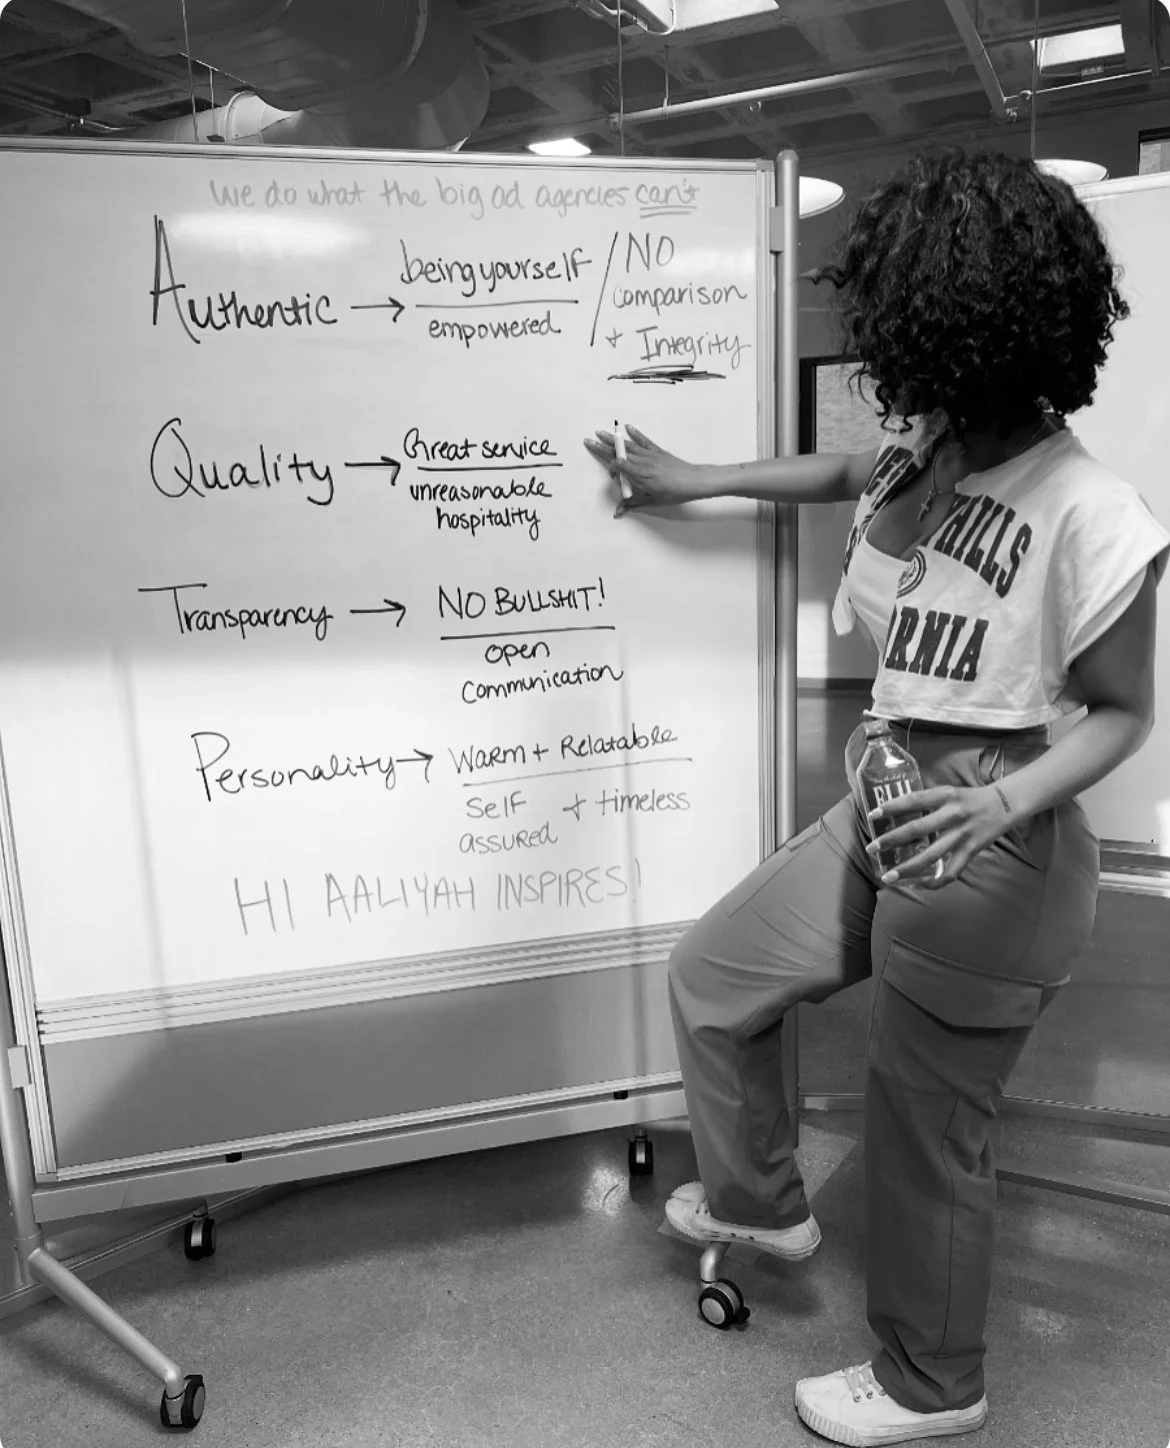 we do what the big ad agencies can't
Authentic → being yourself / NO
empowered
comparison
+ Integrity
Quality → Great service
unreasonable
hospitality
Transparency → NO BULLSHIT!
open
communication
Personality → WARM + Relatable
Self + timeless
assured
HI AALIYAH INSPIRES!
HILLS
RNIA